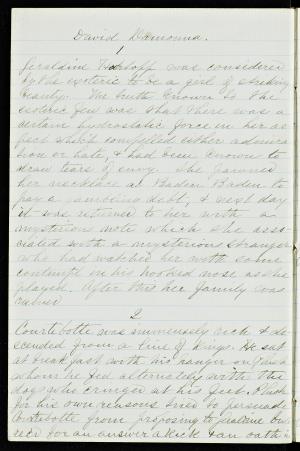 David Deronna.
1
Geraldine was considered
by the exoteric to be a girl of striking
beauty. The truth known to the
esoteric few was that there was a
certain hydrostatic force in her as
fact which compelled either admira
tion or hate, & had been known to
draw tears of envy. She pawned
her necklace at Baden Baden to
pay a gambling debt, & next day
it was returned to her with a
mysterious note which she asso
ciated with a mysterious stranger
who had watched her with some
contempt in his hooked nose as she
played. After this her family was
ruined
2
Courtbotte was immensely rich & de
scended from a line of Kings. He sat
at breakfast with his hanger on
whom he fed alternately with the
dogs who cringed at his feet.
for his own reasons tried to persuade
Courtbotte from proposing to
rec'd for an answer a kick & an oath